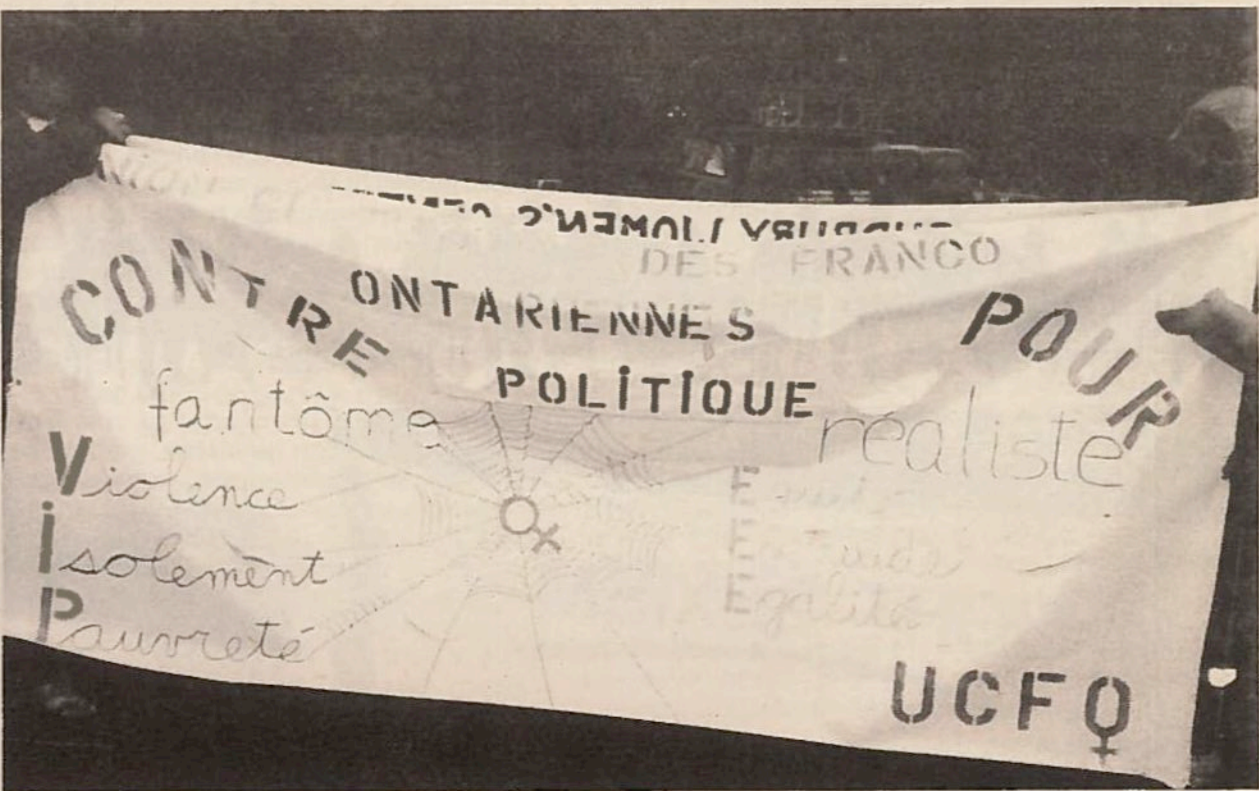 DES FRANCO
ONTARIENNES
CONTRE
POUR
POLITIQUE
fantôme
réaliste
Violence
Isolement
Pauvreté
Egalité
UCFO